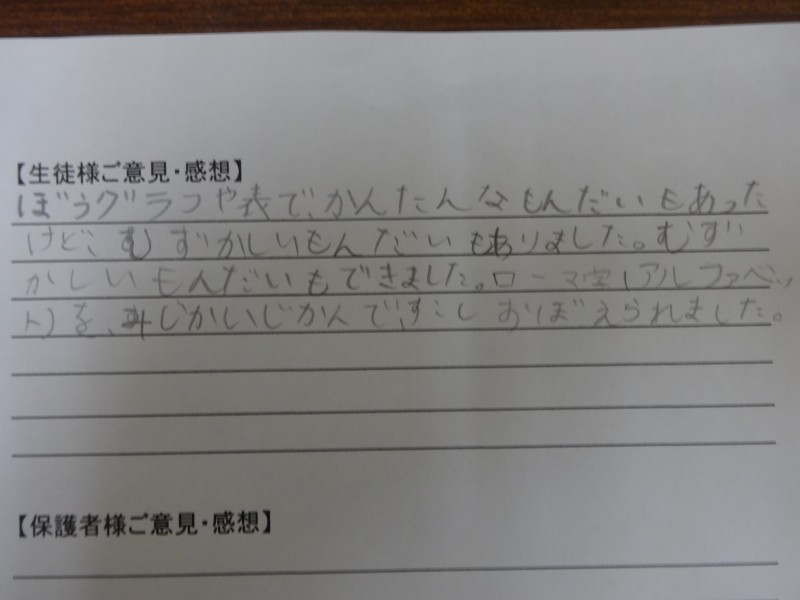 【生徒様ご意見・感想】
ぼうグラフや表で、かんたんなもんだいもあった
けど、むずかしいもんだいもありました。むず
かしいもんだいもできました。ローマ字(アルファベッ
ト)を、みじかいじかんで、すこしおぼえられました。
【保護者様ご意見・感想】